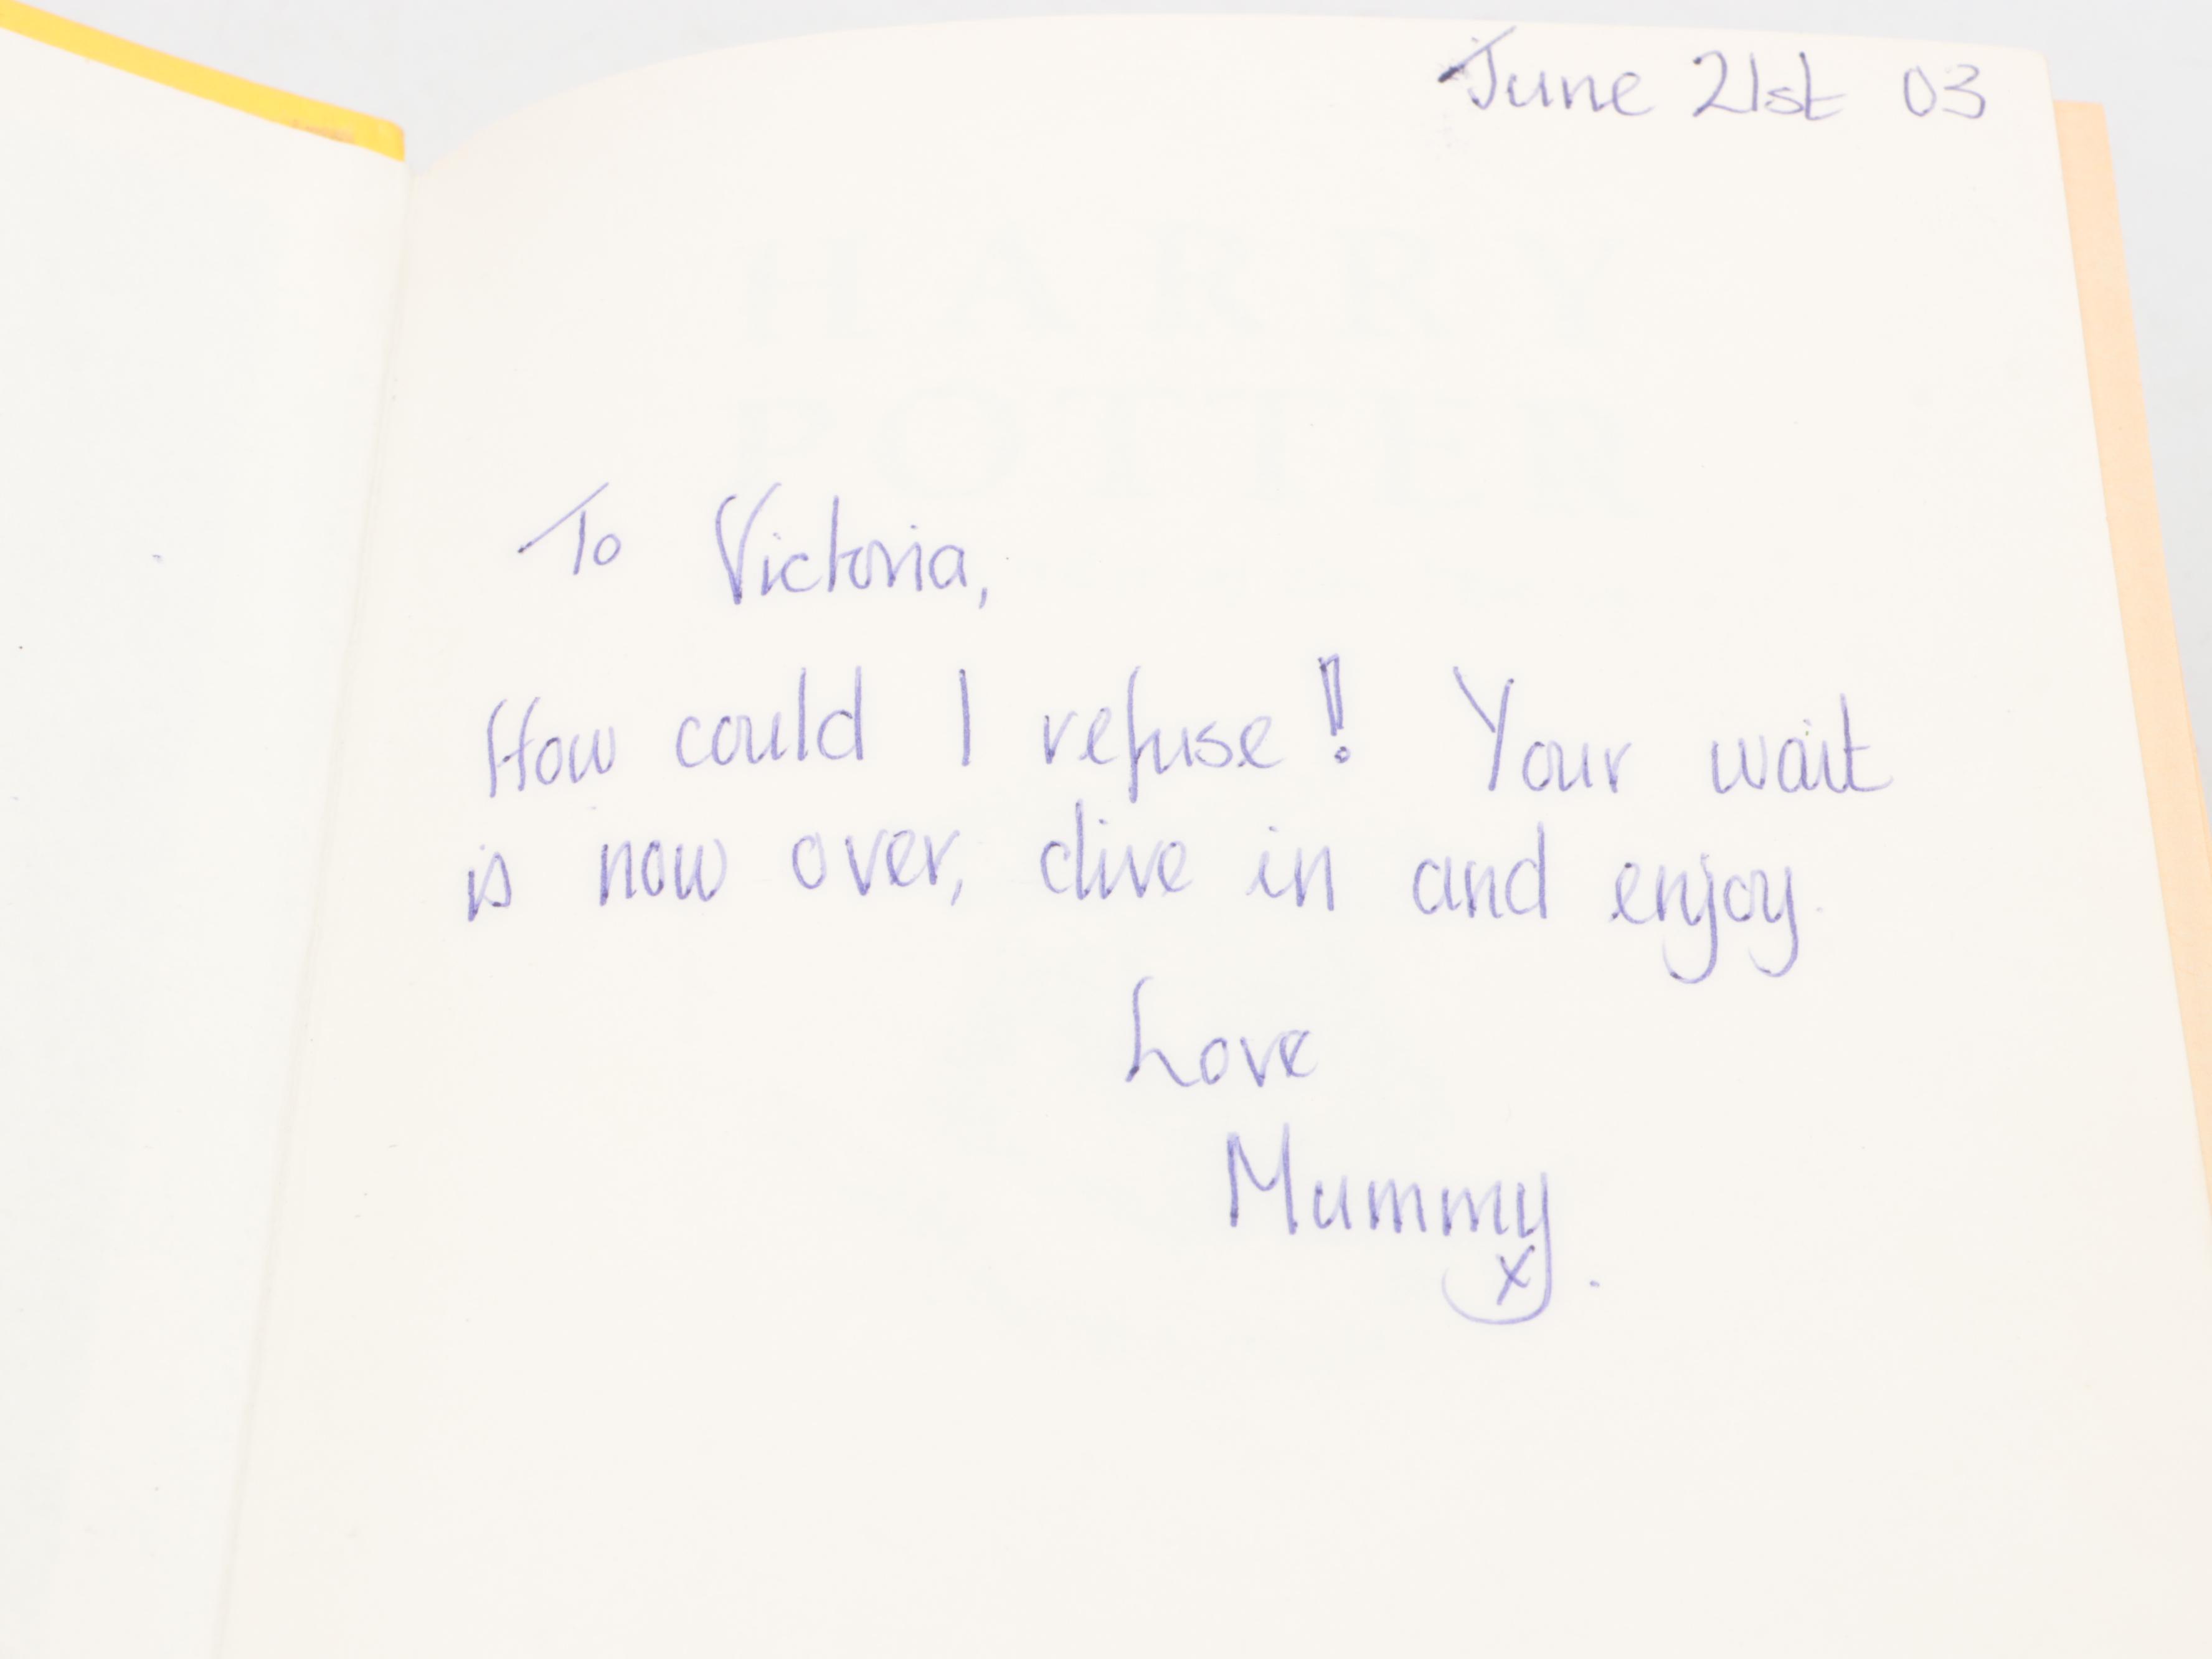 June 21st 03
HARRY
POTTER
To Victoria,
How could I refuse! Your wait
is now over, dive in and enjoy.
Love
Mummy
x.